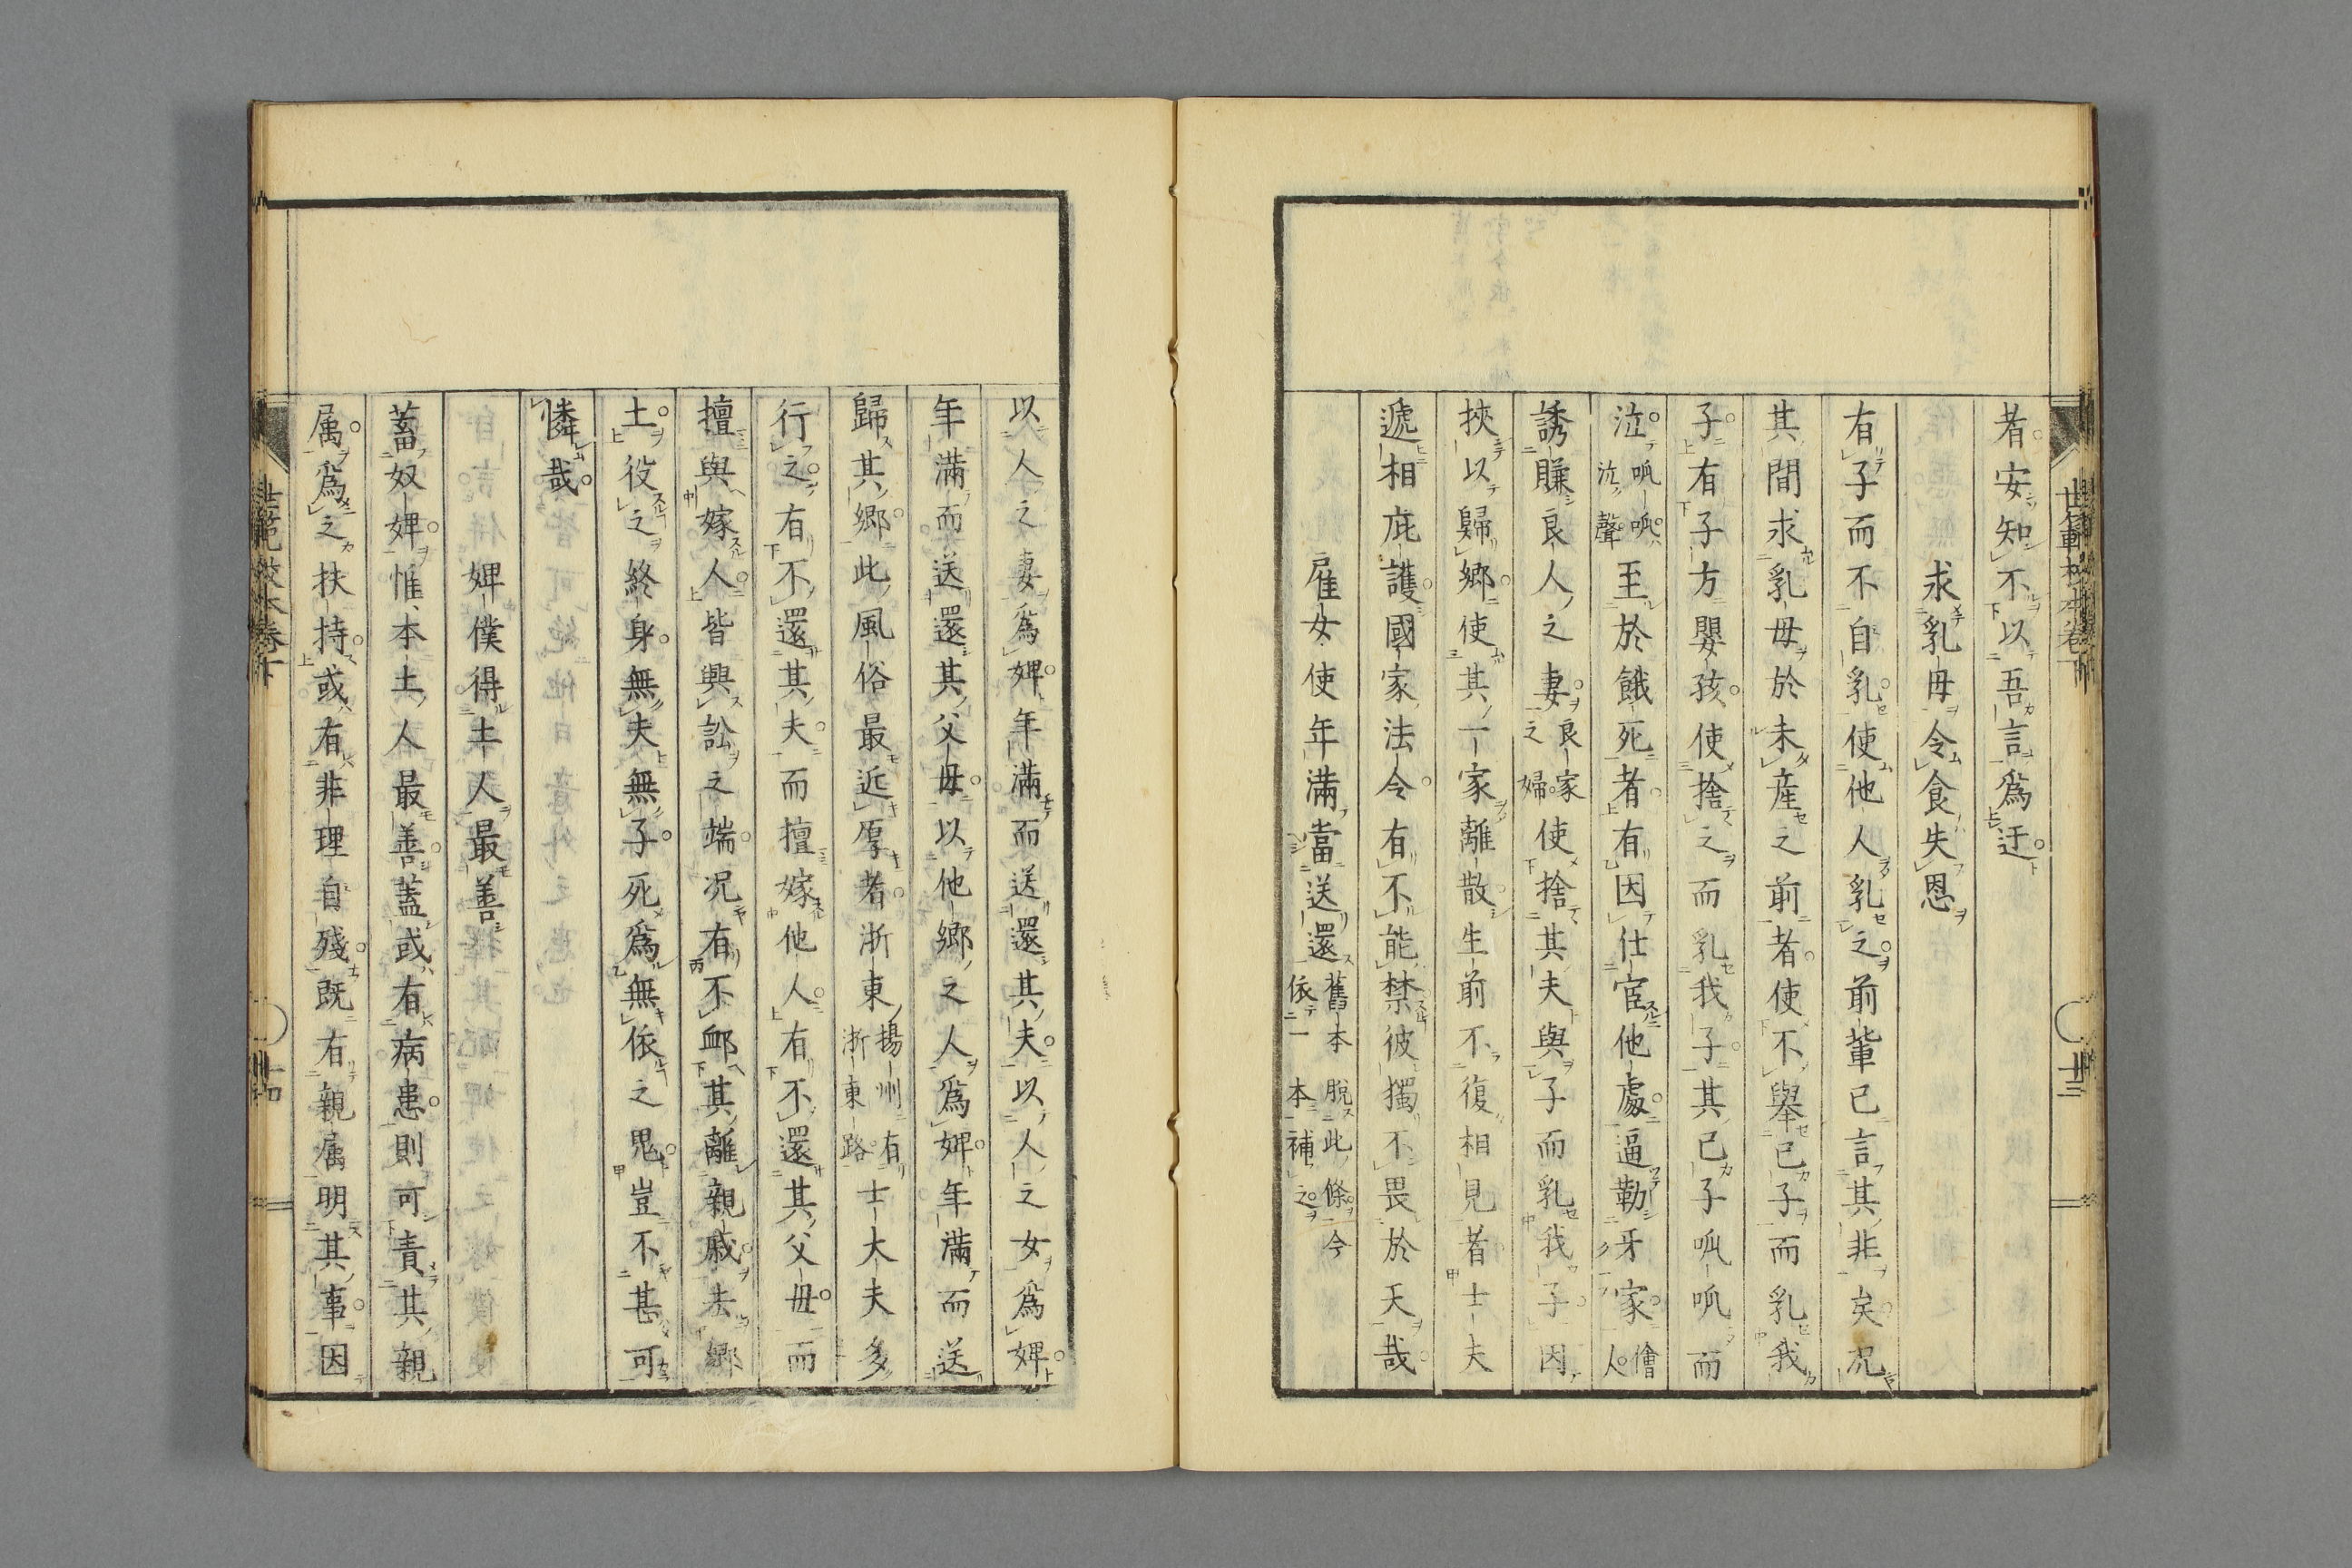 者安知不以吾言爲迂
求乳母令食失恩
有子而不自乳使他人乳之前輩已言其非矣况
其間求乳母於未産之前者使不舉己子而乳我
子有子方嬰孩使捨之而乳我子其己子呱呱而
泣呱呱泣聲至於餓死者有因仕宦他處逼勒牙家儈人
誘賺良人之妻良家之婦使捨其夫與子而乳我子因
挾以歸鄉使其一家離散生前不復相見者士夫
遞相庇護國家法令有不能禁彼獨不畏於天哉
雇女使年滿當送還舊本脫此條今依一本補之
以人之妻爲婢年滿而送還其夫以人之女爲婢
年滿而送還其父母以他鄉之人爲婢年滿而送
歸其鄉此風俗最近厚者浙東揚州有浙東路士大夫多
行之有不還其夫而擅嫁他人有不還其父母而
擅與嫁人皆興訟之端况有不䘏其離親戚去鄉
土役之終身無夫無子死爲無依之鬼豈不甚可
憐哉
婢僕得土人最善
蓄奴婢惟本土人最善蓋或有病患則可責其親
属爲之扶持或有非理自殘既有親属明其事因
世範校本卷下